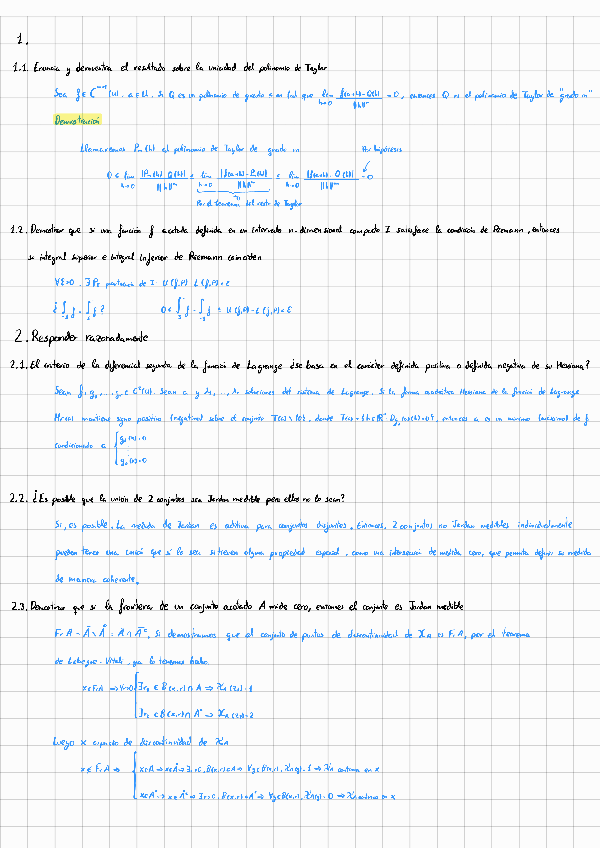 1.
1.1. Enuncia y demuestra el resultado sobre la unicidad del polinomio de Taylor
Sea f ∈ C^(m+1)(U), a ∈ U. Si Q es un polinomio de grado ≤ m tal que lim h→0 |f(a+h)-Q(h)| / ||h||^m = 0, entonces Q es el polinomio de Taylor de "grado m"
Demostración
Llamaremos Pm(h) al polinomio de Taylor de grado m
Por hipótesis
0 ≤ lim h→0 |Pm(h)-Q(h)| / ||h||^m ≤ lim h→0 |f(a+h)-Pm(h)| / ||h||^m ≤ lim h→0 |f(a+h)-Q(h)| / ||h||^m = 0
Por el teorema del resto de Taylor
1.2. Demostrar que si una función f acotada definida en un intervalo n-dimensional compacto I satisface la condición de Riemann, entonces
su integral superior e integral inferior de Riemann coinciden
∀ε>0, ∃Pε partición de I: U(f,P) - L(f,P) < ε
¿∫f = ∫f? 0 ≤ ∫f - ∫f ≤ U(f,P) - L(f,P) < ε
2. Responder razonadamente
2.1. El criterio de la diferencial segunda de la función de Lagrange ¿se basa en el carácter definida positiva o definida negativa de su Hessiana?
Sean f, g1, ..., gr ∈ C²(U). Sean a y λ1, ..., λr soluciones del sistema de Lagrange. Si la forma cuadrática Hessiana de la función de Lagrange
H(a) mantiene signo positivo (negativo) sobre el conjunto T(a)\{0}, donde T(a) = {h∈ℝ^n: Dgi(a)(h)=0}, entonces a es un mínimo (máximo) de f
condicionado a { g1(x)=0
gr(x)=0
2.2. ¿Es posible que la unión de 2 conjuntos sea Jordan medible pero ellos no lo sean?
Si, es posible. La medida de Jordan es aditiva para conjuntos disjuntos. Entonces, 2 conjuntos no Jordan medibles individualmente
pueden tener una unión que si lo sea si tienen alguna propiedad especial, como una intersección de medida cero, que permita definir su medida
de manera coherente.
2.3. Demostrar que si la frontera de un conjunto acotado A mide cero, entonces el conjunto es Jordan medible
Fr A = Ā \ Å = Ā ∩ Ā^c. Si demostramos que el conjunto de puntos de discontinuidad de χA es Fr A, por el teorema
de Lebesgue-Vitali, ya lo tenemos hecho.
x ∈ Fr A ⇒ ∀r>0 { ∃z1 ∈ B(x,r) ∩ A ⇒ χA(z1)=1
∃z2 ∈ B(x,r) ∩ A^c ⇒ χA(z2)=2
Luego x es punto de discontinuidad de χA
x ∉ Fr A ⇒ { x∈A ⇒ x∈Å ⇒ ∃r>0, B(x,r)⊂A ⇒ ∀y∈B(x,r), χA(y)=1 ⇒ χA continua en x
x∈A^c ⇒ x∈Å^c ⇒ ∃r>0, B(x,r)⊂A^c ⇒ ∀y∈B(x,r), χA(y)=0 ⇒ χA continua en x